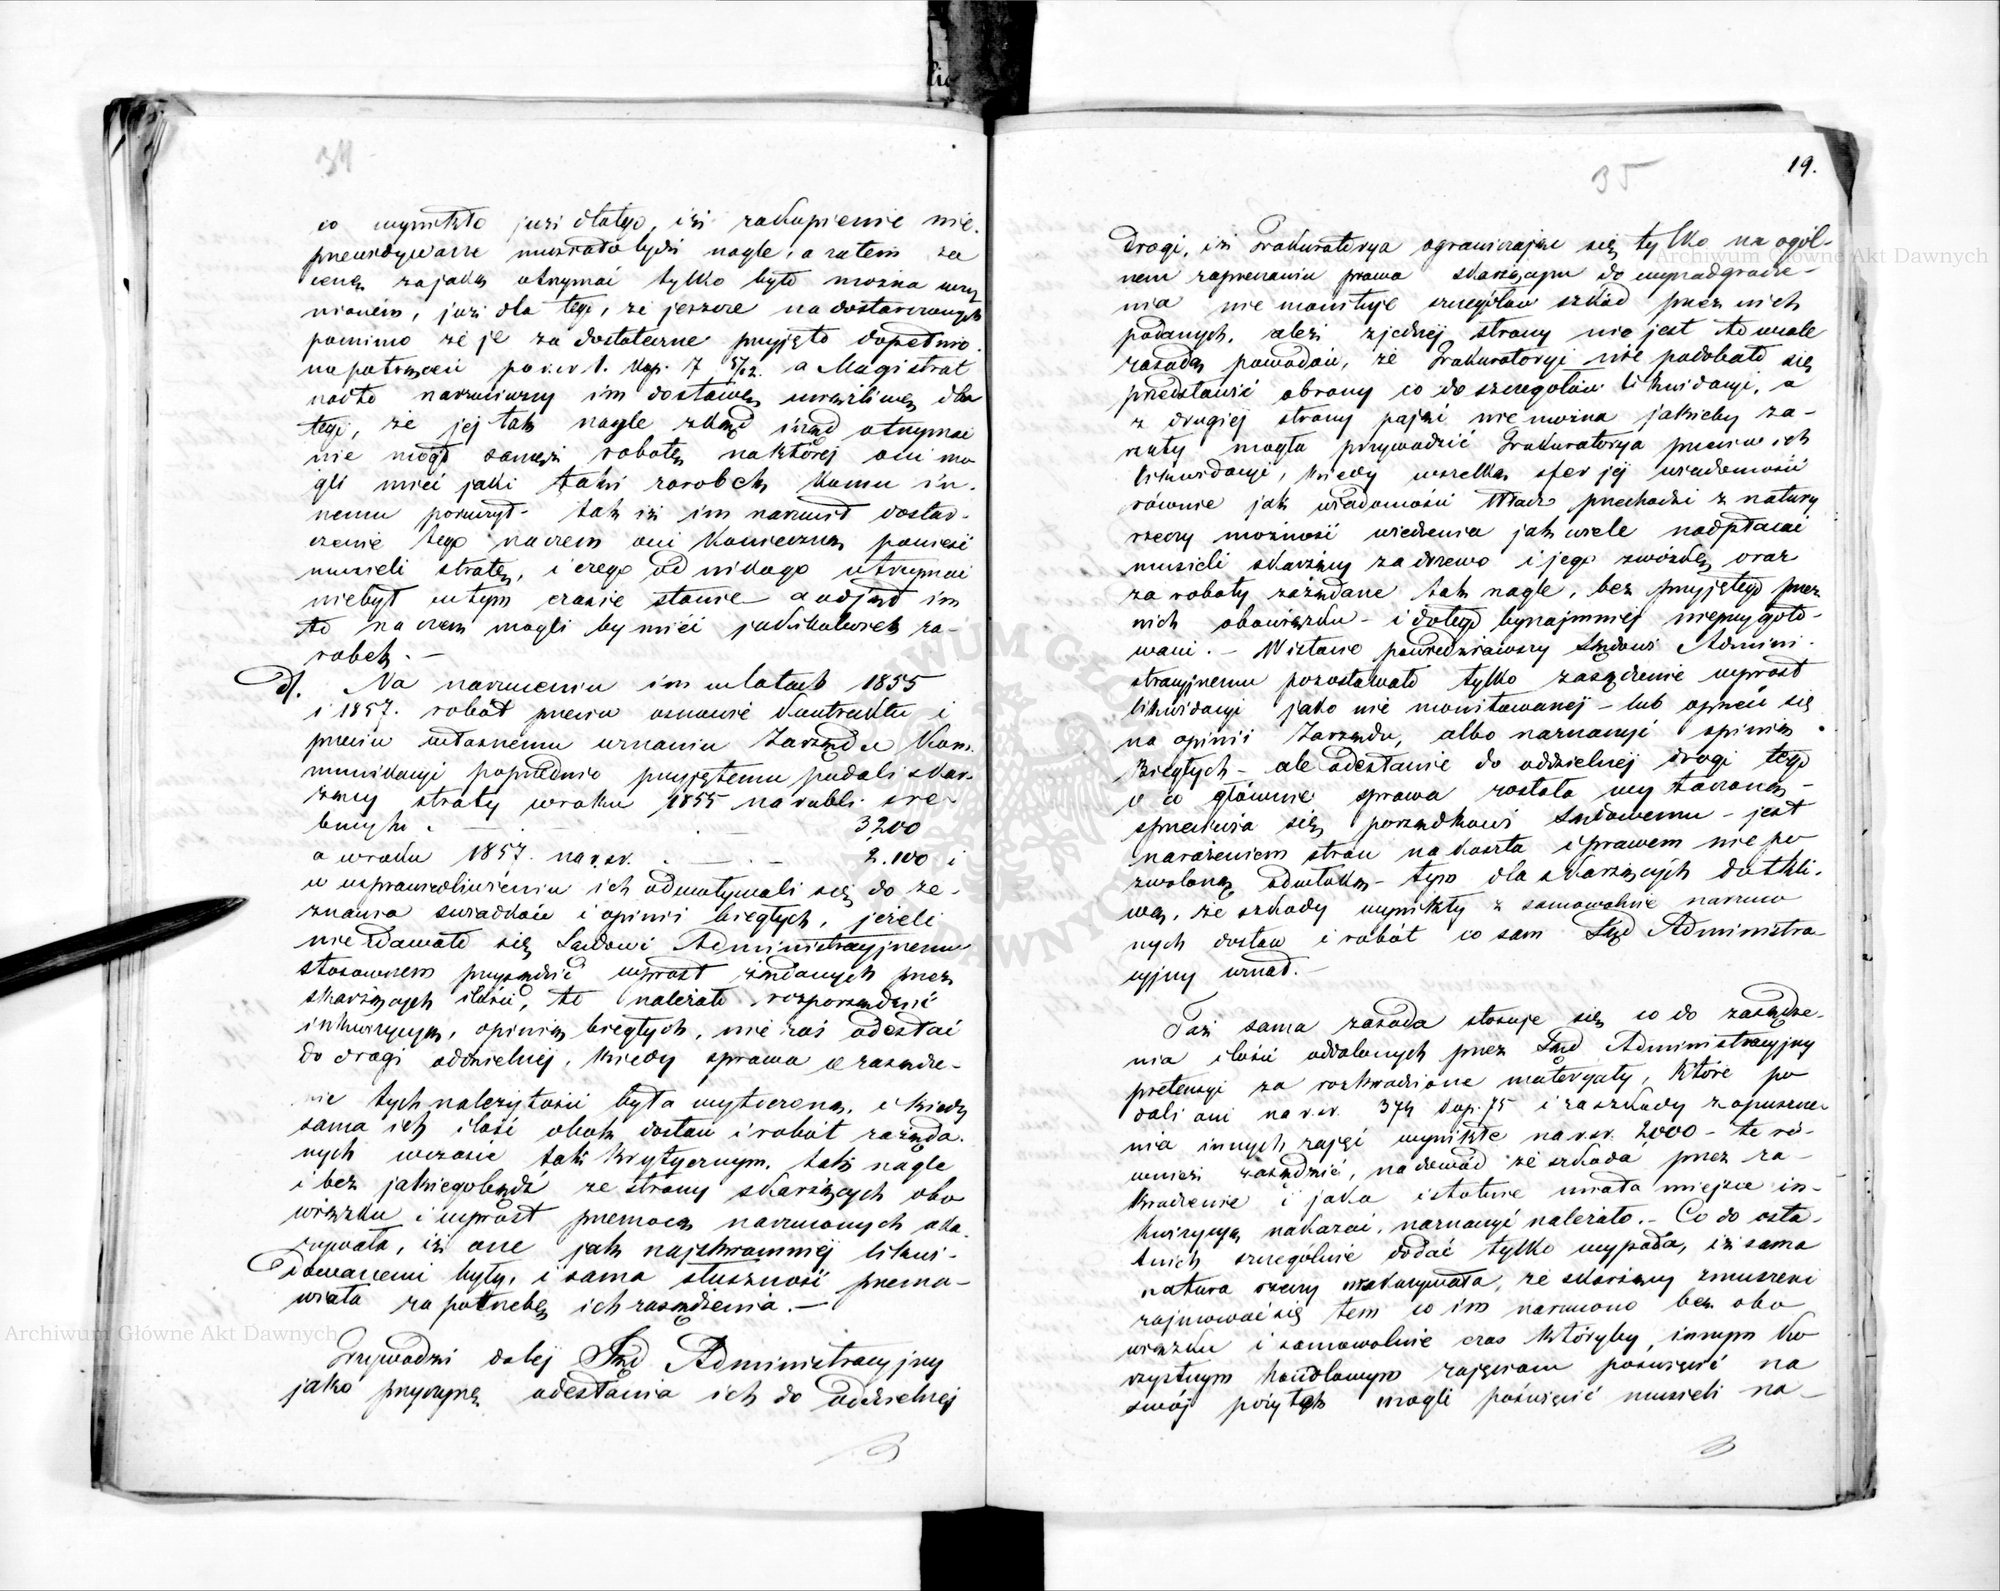 34
co wynikło już dlatego, iż zakupienie nie-
przewidywane musiało być nagle, a zatem za
cenę za jaką otrzymać tylko było można uczy
nionem, już dla tego, że jeszcze na dostarczonych
pomimo że je za dostateczne przyjęto dopełnio
no potrąceń po r. sr. 1. kop. 7 5/12. a Magistrat
nadto narzuciwszy im dostawę uraźliwą dla
tego, że jej tak nagle zkąd inąd otrzymać
nie mógł samęż robotę na której oni mo
gli mieć jaki taki zarobek komu in-
nemu poruczył tak iż im narzucił dostar-
czenie tego na czem oni koniecznie ponieść
musieli stratę, i czego od nikogo otrzymać
niebył w tym czasie stanie a odjął im
to na czem mogli by mieć jakikolwiek za-
robek. —
d/. Na narzuceniu im w latach 1855
i 1857. robót przeciw osnowie Kontraktu i
przeciw własnemu uznaniu Zarządu Kom-
munikacyi poprzednio przyjętemu podali skar-
żący straty w roku 1855 na rubli sre-
brnych . — . — 3200
a w roku 1857. na r. sr. . — . — 2.100 i
w usprawiedliwieniu ich odwoływali się do ze-
znania świadków i opinii biegłych, jeżeli
nie zdawało się Sądowi Administracyjnemu
stosownem przysądzić wprost żądanych przez
skarżących ilości, to należało rozporządzić
inkwizycyą, opinią biegłych, nie zaś odesłać
do drogi oddzielnej, kiedy sprawa o zasądze-
nie tych należytości była wytoczoną, i kiedy
sama ich ilość obok dostaw i robót zażąda-
nych w czasie tak krytycznym, tak nagle
i bez jakiegobądź ze strony skarżących obo
wiązku i wprost przemocą narzuconych oka
zywała, iż one jak najskromniej likwi-
dowanemi były, i sama słuszność przema-
wiała za potrzebą ich zasądzenia. —
Przywodzi dalej Sąd Administracyjny
jako przyczynę odesłania ich do oddzielnej
35
19.
drogi, iż Prokuratorya ograniczając się tylko na ogól-
nem zaprzeczaniu prawa skarżącym do wynadgrodze-
nia nie monituje szczegółów szkód przez nich
podanych, ależ z jednej strony nie jest to wcale
zasadą powodów, że Prokuratoryi nie podobało się
przedstawić obrony co do szczegółów likwidacyi, a
z drugiej strony pojąć nie można jakieby za-
rzuty mogła przywodzić Prokuratorya przeciw ich
likwidacyi, kiedy wszelką sferę jej wiadomości
równie jak wiadomości Władz przechodzi z natury
rzeczy możność wiedzenia jak wiele nadpłacać
musieli skarżący za drzewo i jego zwózkę, oraz
za roboty zażądane tak nagle, bez przyjętego przez
nich obowiązku — i dotego bynajmniej nieprzygoto-
wani. — W istocie powiedziawszy Sądowi Admini-
stracyjnemu pozostawało tylko zasądzenie wprost
likwidacyi jako nie monitowanej — lub oprzeć się
na opinii Zarządu, albo naznaczyć opinią
biegłych — ale odesłanie do oddzielnej drogi tego
o co głównie sprawa została wytoczoną —
sprzeciwia się porządkowi Sądowemu — jest
narażeniem stron na koszta i prawem nie po
zwoloną odwłoką — tym dla skarżących dotkli-
wą, że szkody wynikły z samowolnie narzuco
nych dostaw i robót co sam Sąd Administra-
cyjny uznał. —
Taż sama zasada stosuje się co do zasądze-
nia ilości oddalonych przez Sąd Administracyjny
pretensyi za rozkradzione materyały, które po
dali oni na r. sr. 374 kop. 75 i za szkody z opuszcze-
nia innych zajęć wynikłe na r. sr. 2000 — te ró-
wnież zasądzić, na dowód że szkoda przez za-
kradzenie i jaka istotnie miała miejsce in-
kwizycyą nakazać, naznaczyć należało. — Co do osta-
tnich szczególnie dodać tylko wypada, iż sama
natura rzeczy wskazywała, że skarżący zmuszeni
zajmować się tem co im narzucono bez obo
wiązku i samowolnie czas któryby innym ko
rzystnym handlowym zajęciom poświęcić na
swój pożytek mogli poświęcić musieli na —